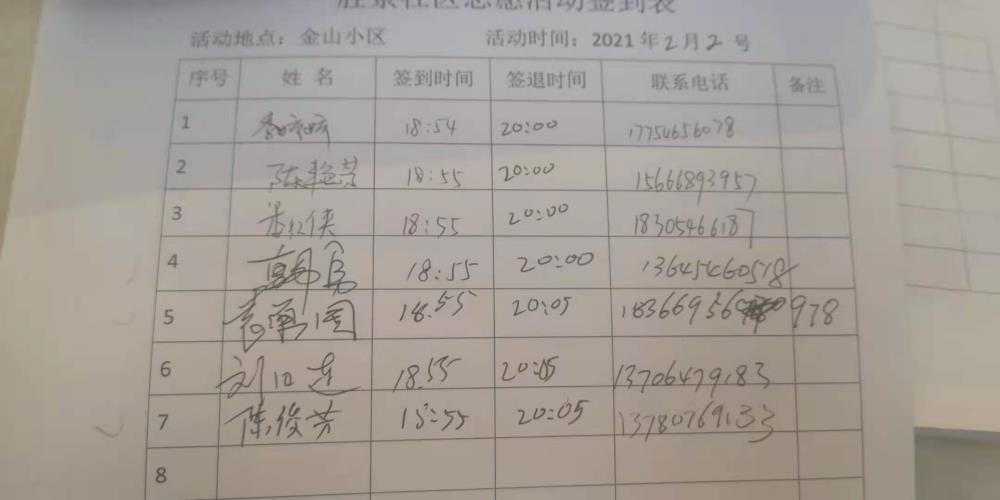 胜景社区志愿活动签到表
活动地点：金山小区 活动时间：2021年2月2号
序号 姓名 签到时间 签退时间 联系电话 备注
1 18:54 20:00 17754656078
2 陈艳芳 18:55 20:00 15666893957
3 红侠 18:55 20:00 18305466187
4 18:55 20:00 13645460518
5 18:55 20:05 978
6 刘 莲 18:55 20:05 13706479183
7 陈俊芳 18:55 20:05 13780769133
8